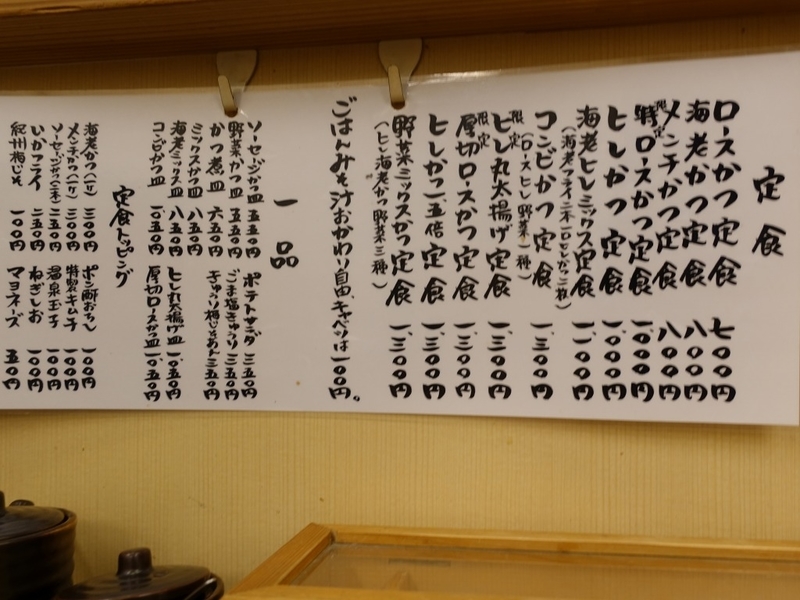 定食
ロースかつ定食 七〇〇円
海老かつ定食 八〇〇円
メンチかつ定食 八〇〇円
限定 特ロースかつ定食 一、〇〇〇円
ヒレかつ定食 一、〇〇〇円
海老ヒレミックス定食 一、一〇〇円
(海老フライ二本一口ヒレかつ二枚)
コンビかつ定食 一、三〇〇円
(ロースヒレ野菜一種)
限定 ヒレ丸太揚げ定食 一、三〇〇円
限定 厚切ロースかつ定食 一、三〇〇円
ヒレかつ一、五倍定食 一、三〇〇円
野菜ミックスかつ定食 一、三〇〇円
(ヒレ海老かつ野菜三種)
ごはんみそ汁おかわり自由、キャベツは一〇〇円。
一品
ソーセージかつ皿 五五〇円
野菜かつ皿 五五〇円
かつ煮皿 六五〇円
ミックスかつ皿 八五〇円
海老ミックス皿 八五〇円
コンビかつ皿 一、〇五〇円
ポテトサラダ 三五〇円
ごま塩きゅうり 三五〇円
きゅうり梅じそあん 三五〇円
ヒレ丸太揚げ皿 一、〇五〇円
厚切ロースかつ皿 一、〇五〇円
定食トッピング
海老かつ(一ケ) 三〇〇円
メンチかつ(一ケ) 三〇〇円
ソーセージかつ(二本) 二五〇円
いかフライ 二五〇円
紀州梅じそ 一〇〇円
ポン酢おろし 一〇〇円
特製キムチ 一〇〇円
温泉玉子 一〇〇円
ねぎしお 一〇〇円
マヨネーズ 五〇円